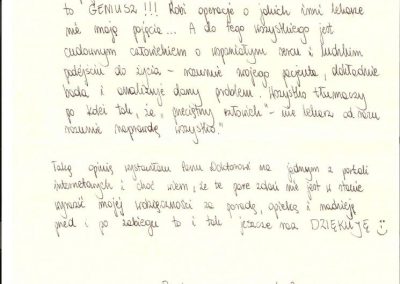 to "GENIUSZ"!!! Robi operacje o jakich inni lekarze
nie mają pojęcia... A do tego wszystkiego jest
cudownym człowiekiem o wspaniałym sercu i ludzkim
podejściu do życia - rozumie swojego pacjenta, dokładnie
bada i analizuje dany problem. Wszystko tłumaczy
po kolei tak, że „przeciętny człowiek" - nie lekarz od razu
rozumie naprawdę wszystko."
Taką opinię wystawiłam Panu Doktorowi na jednym z portali
internetowych i choć wiem, że te parę zdań nie jest w stanie
wyrazić mojej wdzięczności za poradę, opiekę i nadzieję
przed i po zabiegu to i tak jeszcze raz DZIĘKUJĘ